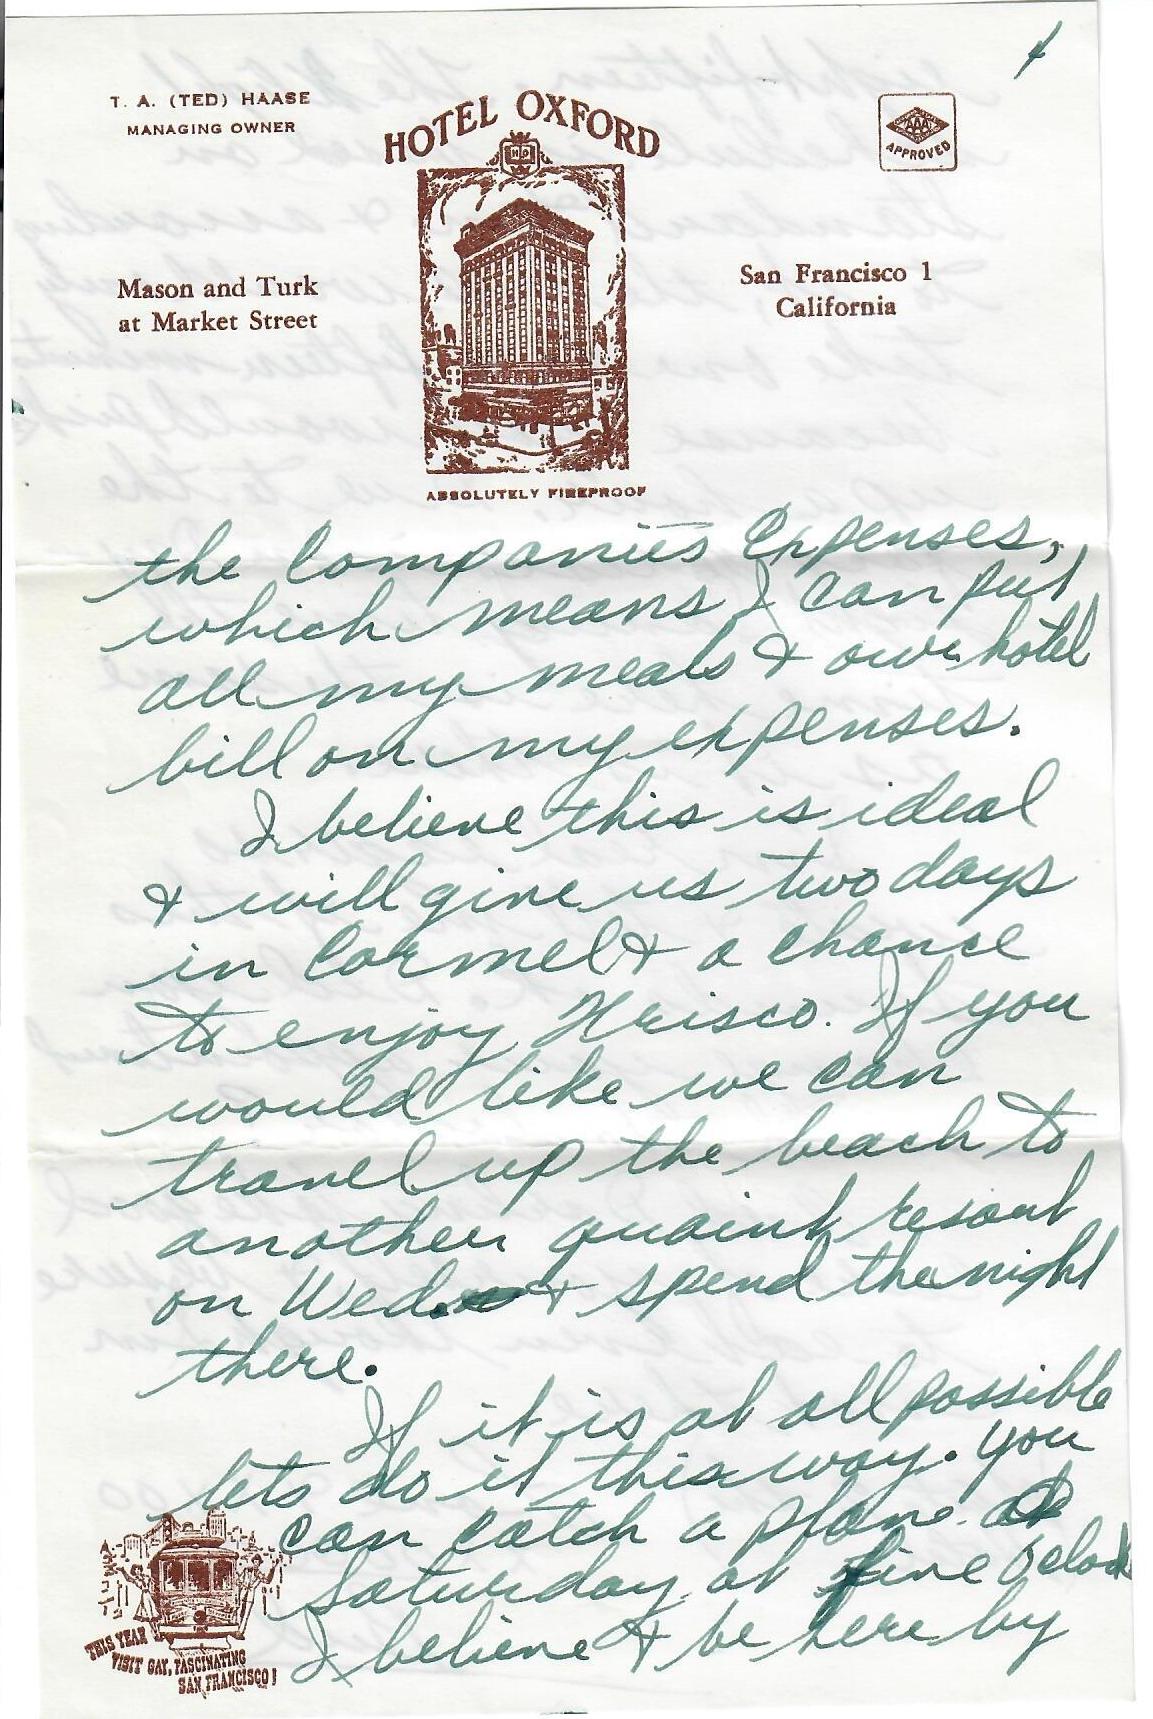 4
T. A. (TED) HAASE
MANAGING OWNER
HOTEL OXFORD
HO
AAA
APPROVED
Mason and Turk
at Market Street
San Francisco 1
California
ABSOLUTELY FIREPROOF
the Companies Expenses,
which means I can put
all my meals & our hotel
bill on my expenses.
I believe this is ideal
& will give us two days
in Carmel & a chance
to enjoy Frisco. If you
would like we can
travel up the beach to
another quaint resort
on Wed. & spend the night
there.
If it is at all possible
lets do it this way. You
can catch a plane
Saturday at five Oclock
I believe & be here by
THIS YEAR
VISIT GAY, FASCINATING
SAN FRANCISCO!